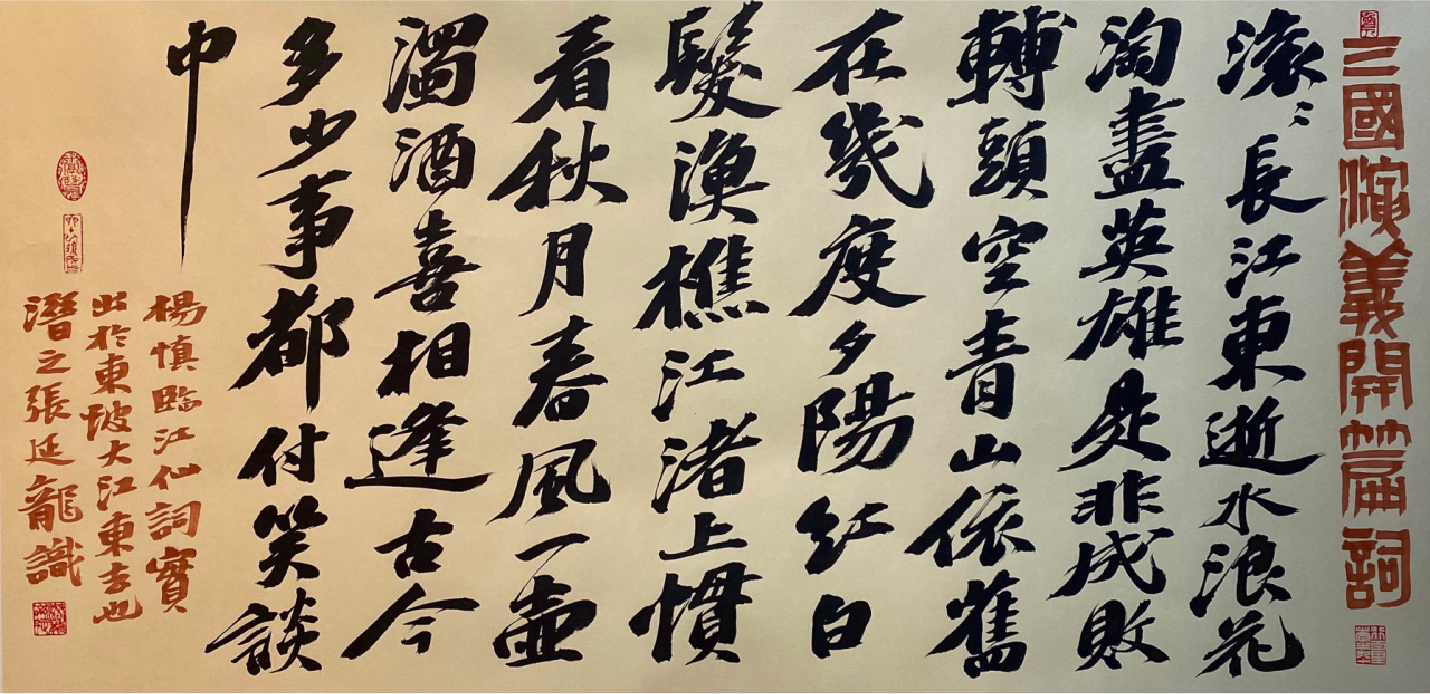 三國演義開篇詞
滾〻長江東逝水浪花
淘盡英雄是非成敗
轉頭空青山依舊
在幾度夕陽紅白
髮漁樵江渚上慣
看秋月春風一壺
濁酒喜相逢古今
多少事都付笑談
中
楊慎臨江仙詞實
出於東坡大江東去也
潛之張延龍識